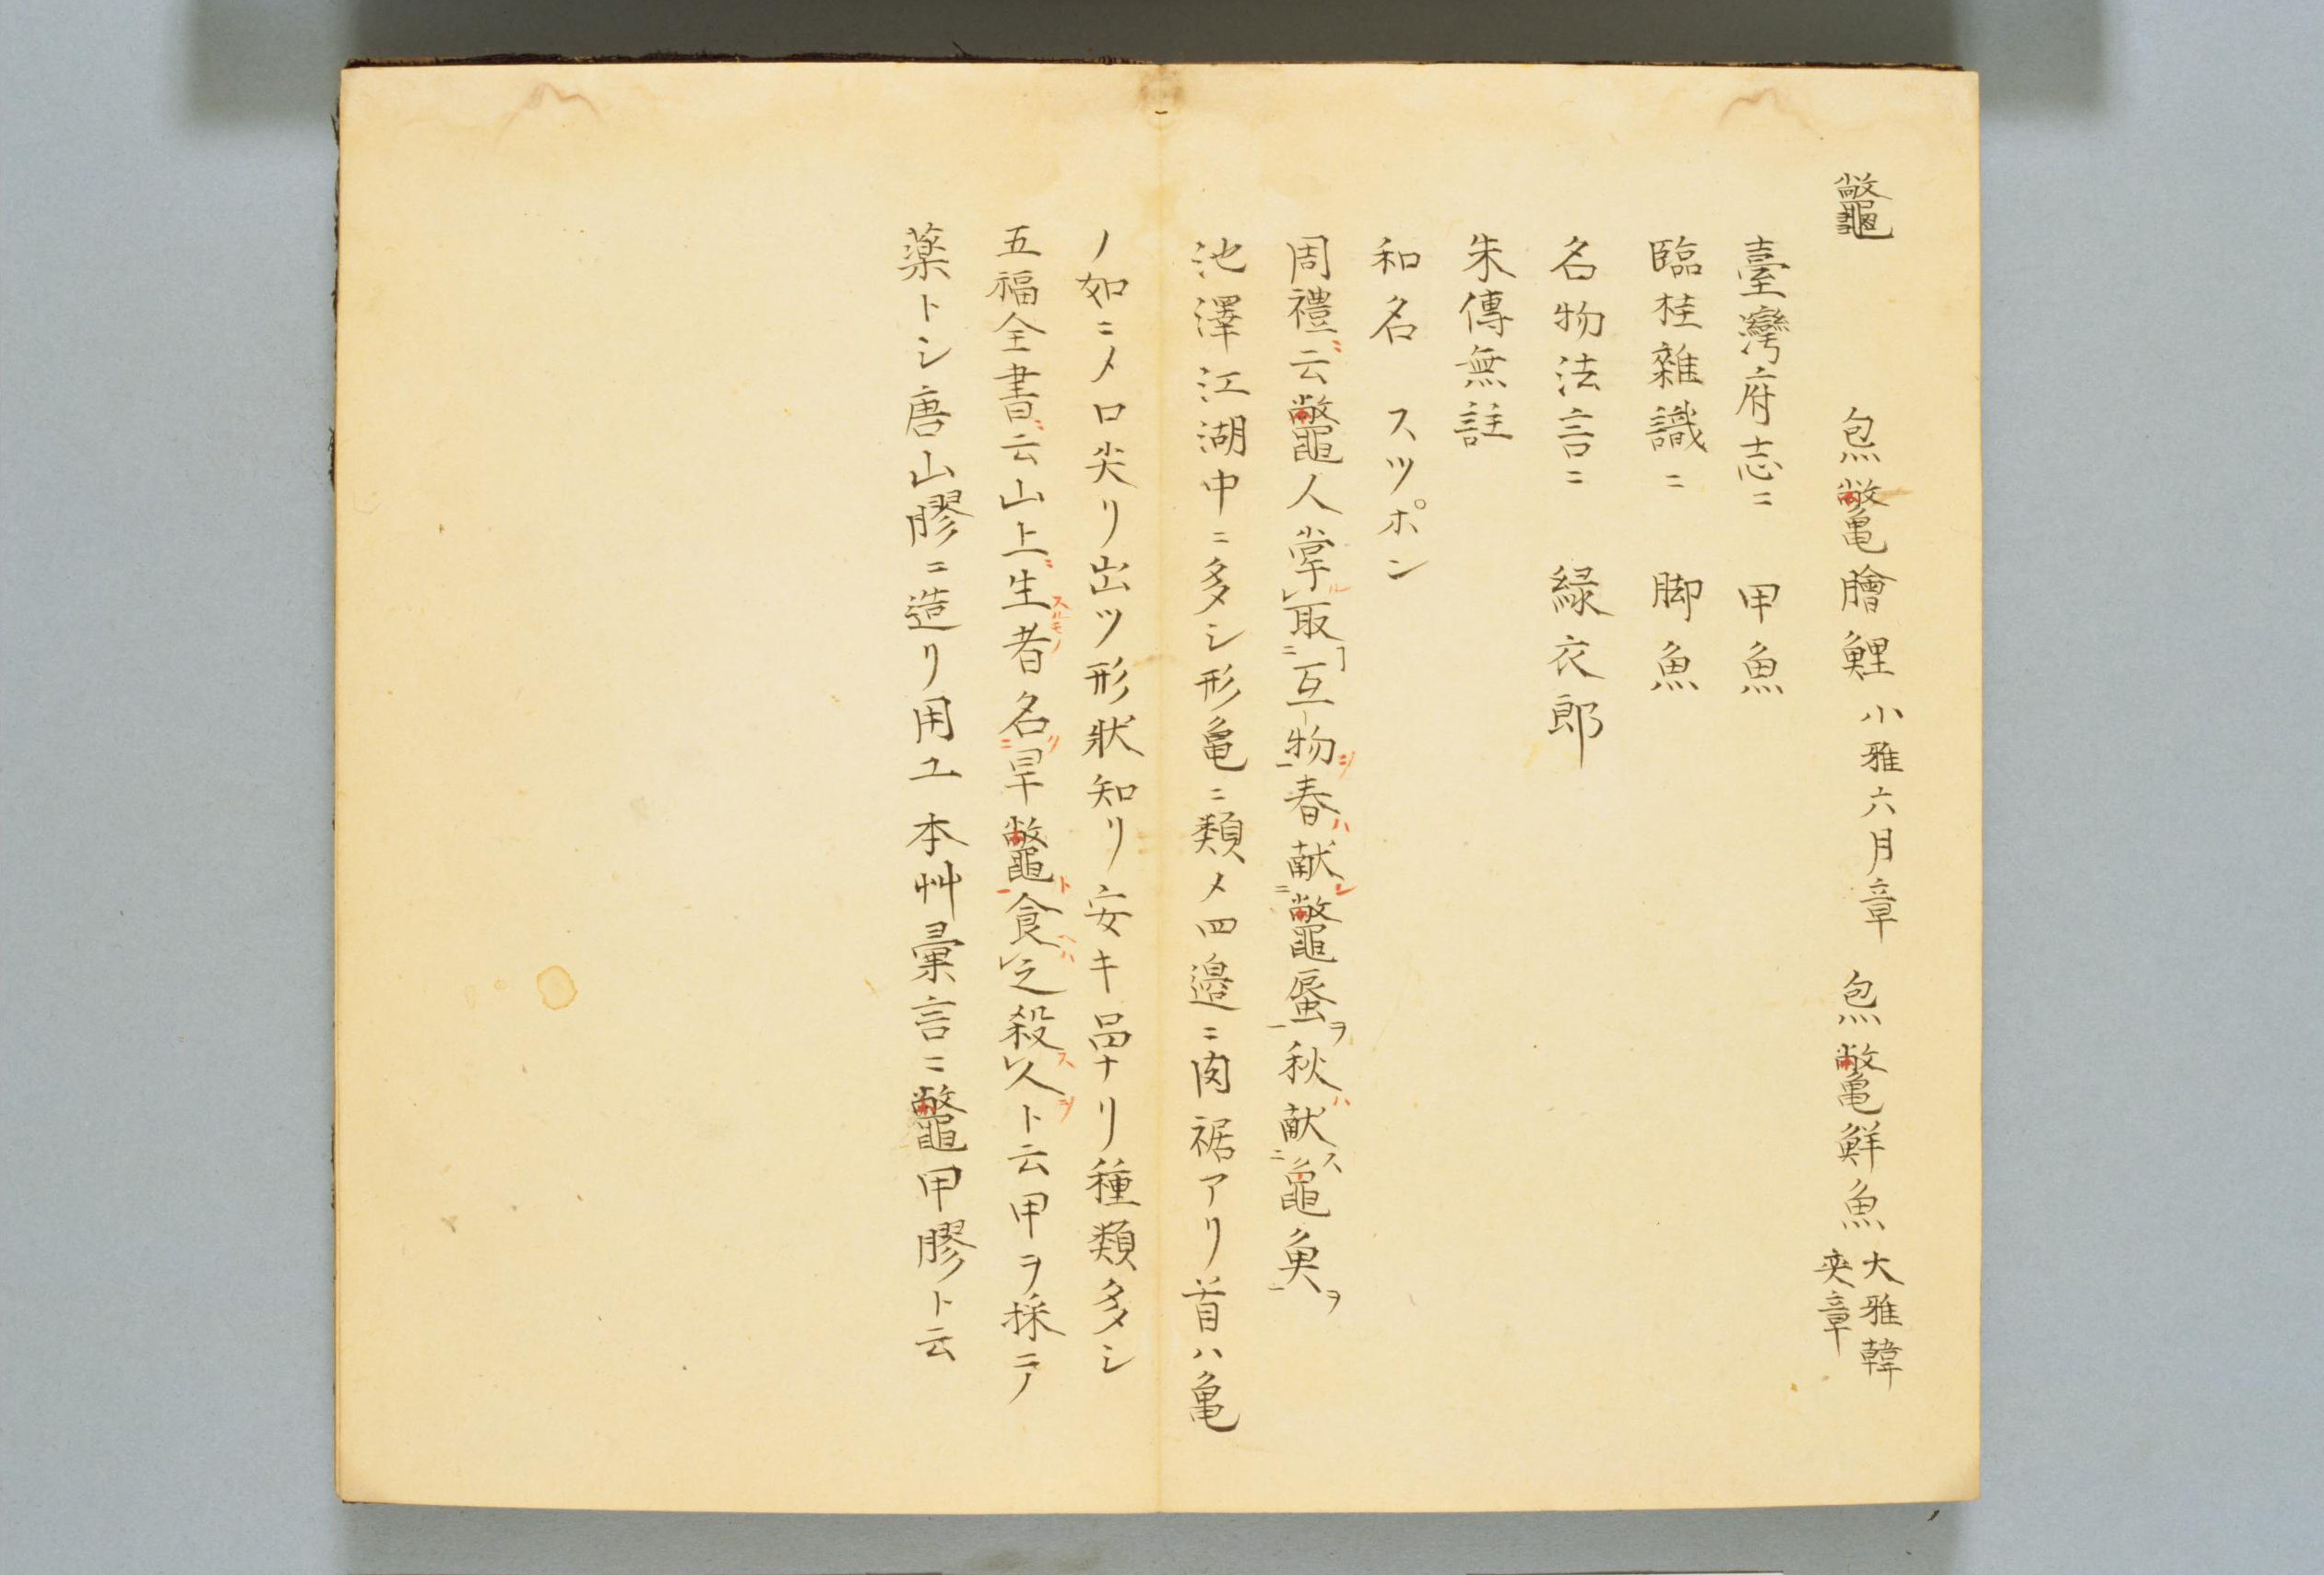 鼈　炰鼈膾鯉 小雅六月章　炰鼈鮮魚 大雅韓奕章
臺灣府志ニ　甲魚
臨桂雜識ニ　脚魚
名物法言ニ　緑衣郎
朱傳無註
和名　スツポン
周禮ニ云鼈人掌ルレ取コトヲ二互物ヲ一春ハ献シ二鼈蜃ヲ一秋ハ献ス二龜魚ヲ一
池澤江湖中ニ多シ形亀ニ類メ四邉ニ肉裾アリ首ハ亀
ノ如ニメ口尖リ出ツ形狀知リ安キ品ナリ種類多シ
五福全書ニ云山上ニ生スルモノ者名リ二旱鼈ト一食ヘハレ之殺スレ人ヲト云甲ヲ採テ
薬トシ唐山膠ニ造リ用ユ本艸彙言ニ鼈甲膠ト云